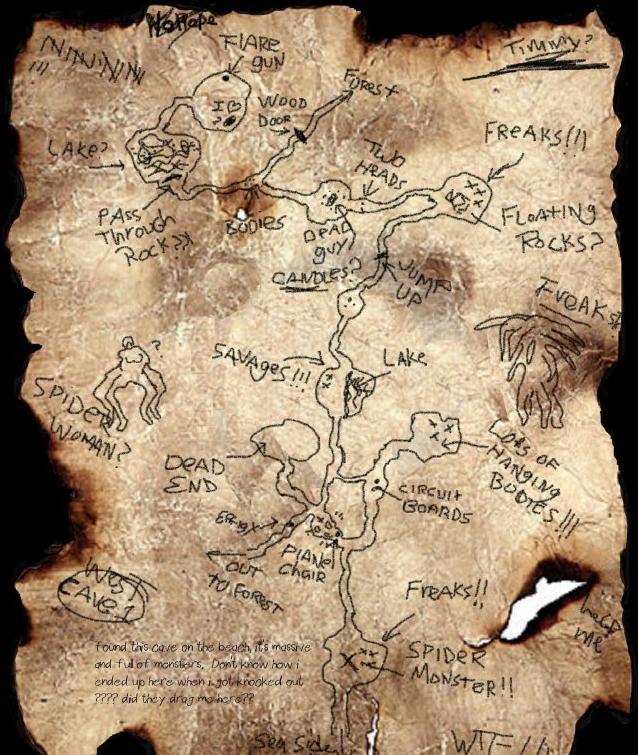 No Hope
NiNiNiNiNi
!!!
Flare
gun
Timmy?
Forest
Wood
Door
Lake?
Two
Heads
FREAKS!!!
Pass
Through
Rock??
Bodies
Dead
guy?
Floating
Rocks?
Candles?
Jump
up
FREAKS
SAVAges!!!
Lake
?
Spider
Woman?
Dead
End
Lots of
Hanging
Bodies!!!
circuit
Boards
Effigy
Plane
Chair
out
to forest
West
Cave 1
Freaks!!
Help
me
found this cave on the beach, it's massive
and full of monsters, Dont know how i
ended up here when i got knocked out
???? did they drag me here??
Spider
Monster!!
Sea Side
WTF!!